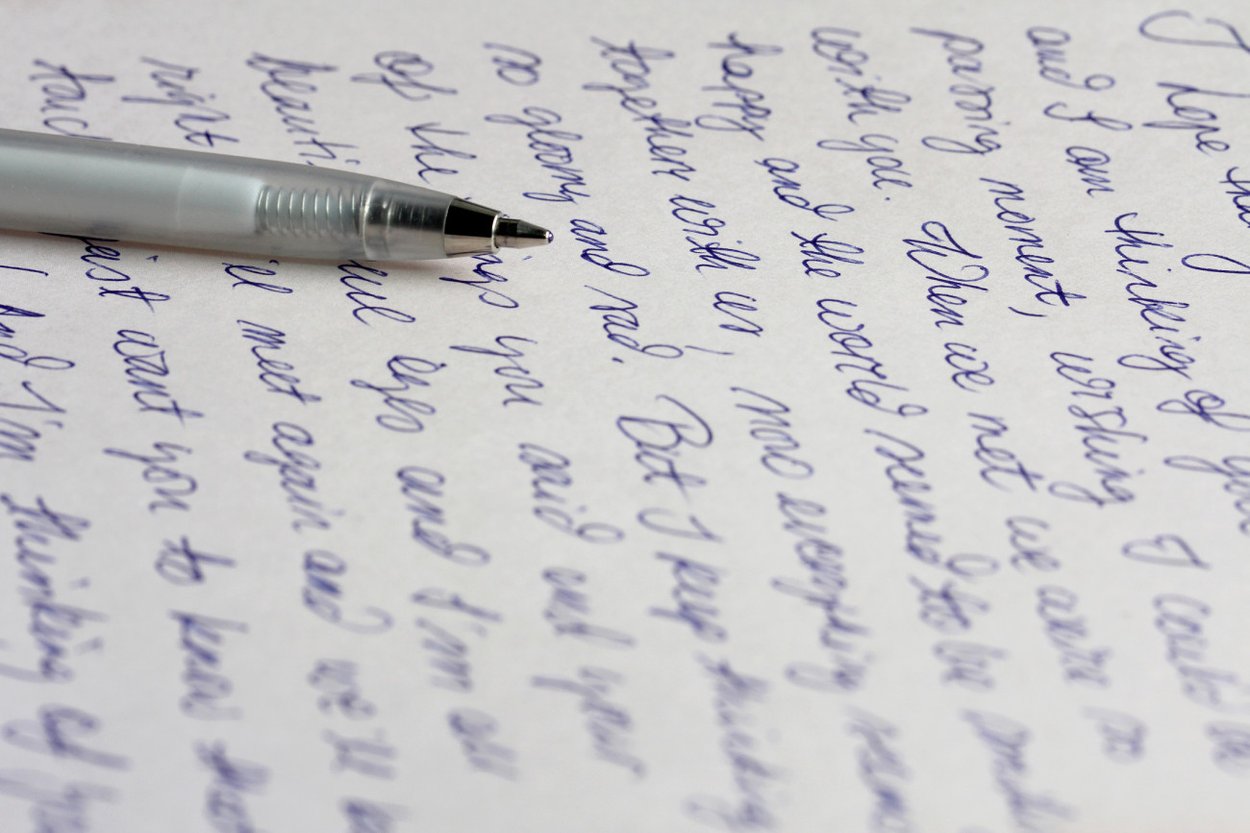 I hope
and I am thinking of you
passing moment, wishing I could be
with you. When we met we were so
happy and the world seemed to be
together with us, now everything seems
so gloomy and sad. But I keep thinking
of the you said and your
beauti eyes and I'm
right met again and we'll
want you to know that
And I'm thinking of you